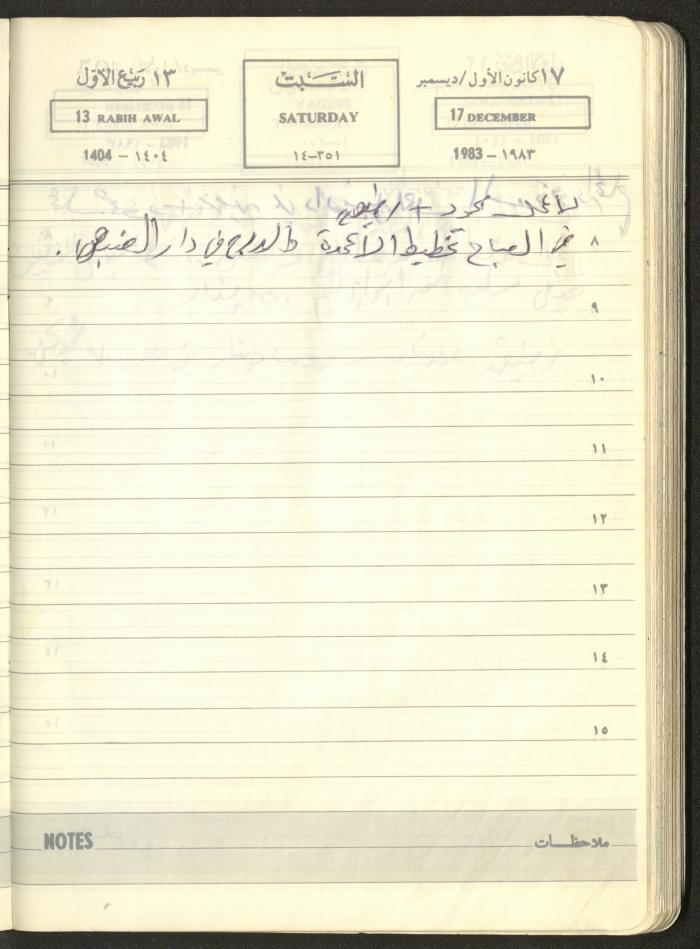 ١٧ كانون الأول/ديسمبر
17 DECEMBER
١٩٨٣ – 1983
السّبت
SATURDAY
٣٥١–١٤
١٣ ربيع الأوّل
13 RABIH AWAL
١٤٠٤ – 1404
محمود +
٨ في الصباح تخطيط الأعمدة والدرج في دار
٩
١٠
١١
١٢
١٣
١٤
١٥
ملاحظات
NOTES